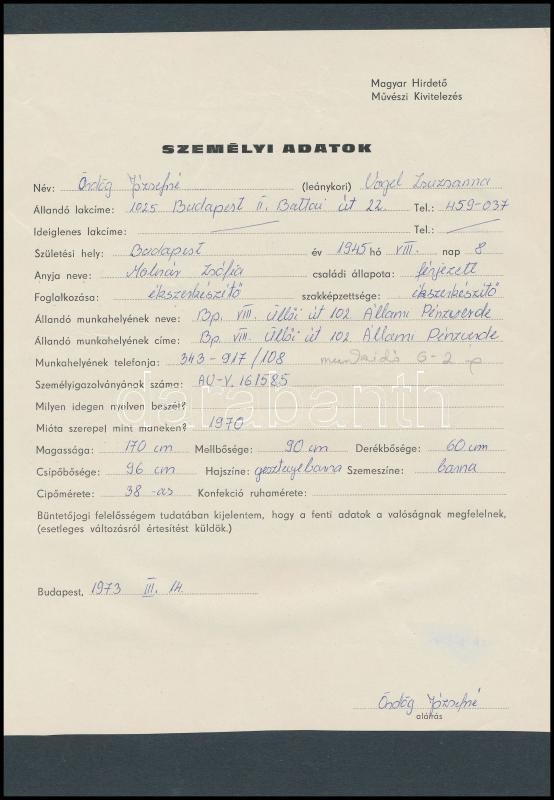 Magyar Hirdető
Művészi Kivitelezés
SZEMÉLYI ADATOK
Név: Ördög Józsefné (leánykori) Vogel Zsuzsanna
Állandó lakcíme: 1025 Budapest II. Battai út 22. Tel.: 459-037
Ideiglenes lakcíme: Tel.:
Születési hely: Budapest év 1945 hó VIII. nap 8
Anyja neve: Molnár Zsófia családi állapota: férjezett
Foglalkozása: ékszerkészítő szakképzettsége: ékszerkészítő
Állandó munkahelyének neve: Bp. VIII. Üllői út 102. Állami Pénzverde
Állandó munkahelyének címe: Bp. VIII. Üllői út 102. Állami Pénzverde
Munkahelyének telefonja: 343-917/108 munkaidő 6-2
Személyigazolványának száma: AU-V. 161585
darabanth
Milyen idegen nyelven beszél?
Mióta szerepel mint maneken? 1970
Magassága: 170 cm Mellbősége: 90 cm Derékbősége: 60 cm
Csípőbősége: 96 cm Hajszíne: gesztenyebarna Szemeszíne: barna
Cipőmérete: 38-as Konfekció ruhamérete:
Büntetőjogi felelősségem tudatában kijelentem, hogy a fenti adatok a valóságnak megfelelnek,
(esetleges változásról értesítést küldök.)
Budapest, 1973 III. 14.
Ördög Józsefné
aláírás